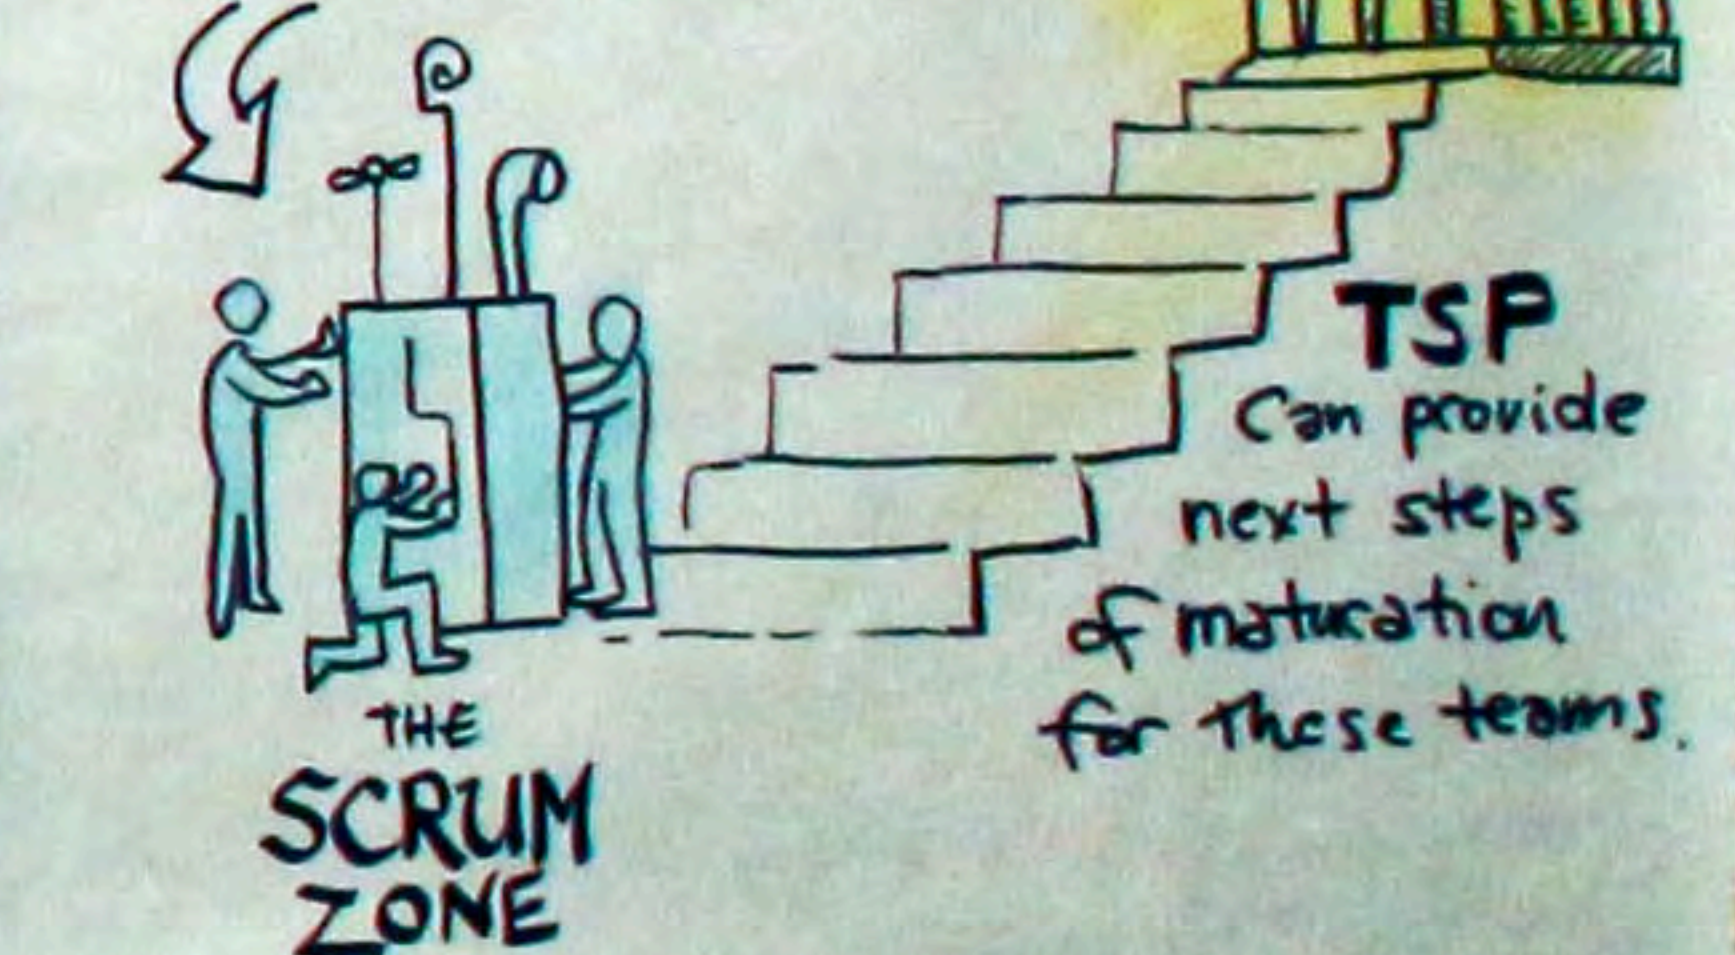 THE
SCRUM
ZONE
TSP
Can provide
next steps
of maturation
for These teams.